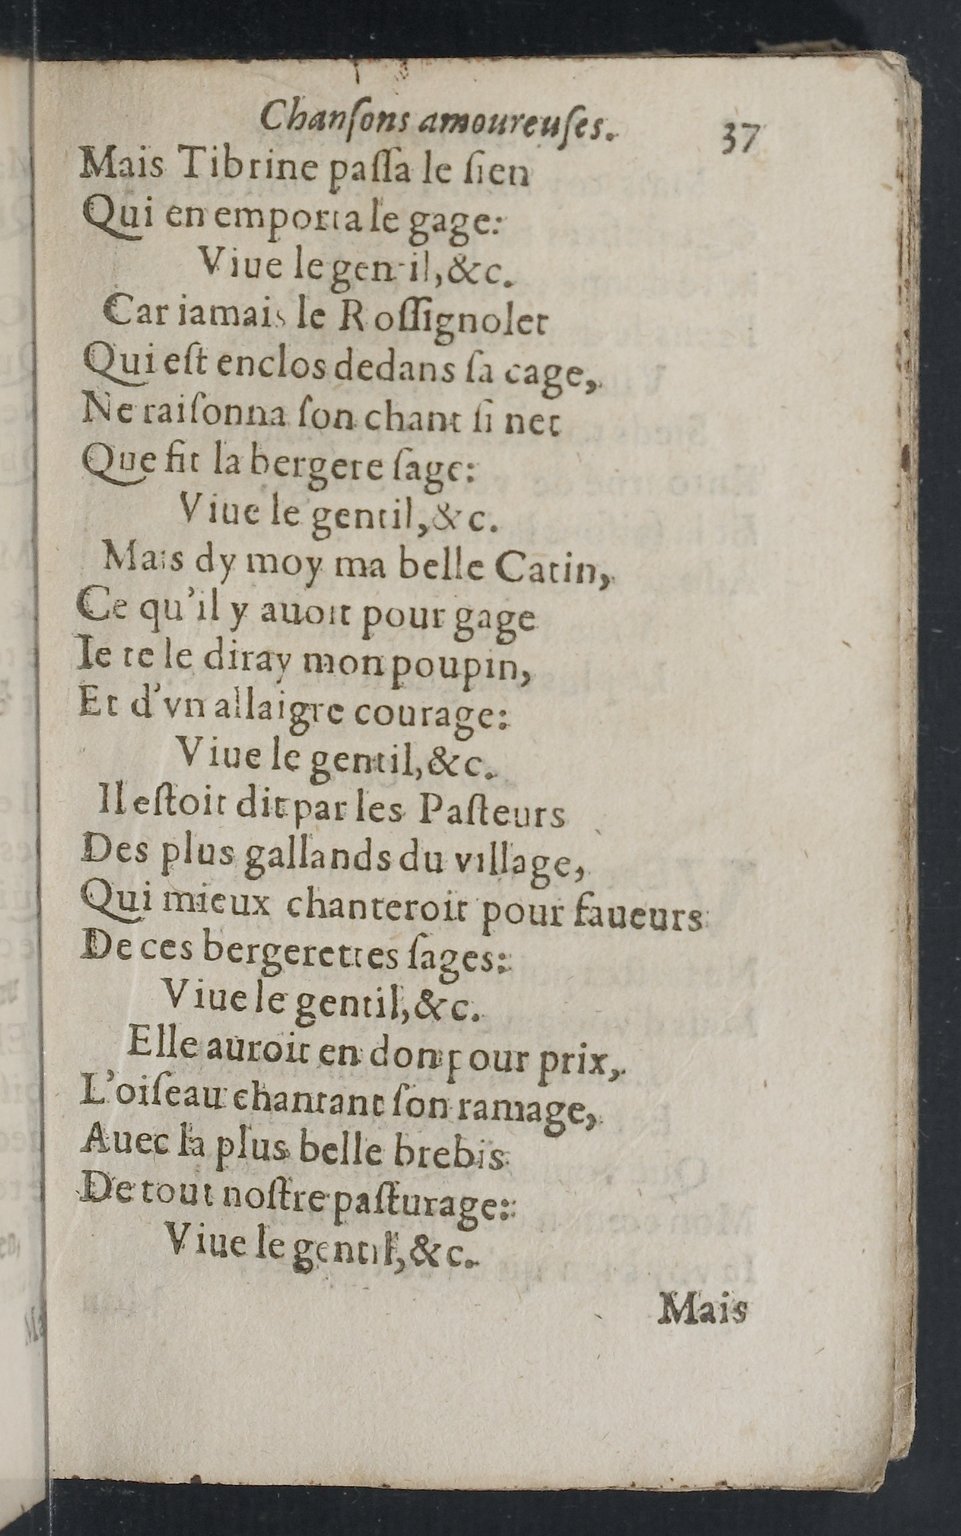 Chanſons amoureuſes. 37
Mais Tibrine paſſa le ſien
Qui en emporta le gage:
Viue le gentil, &c.
Car iamais le Roſſignolet
Qui eſt enclos dedans ſa cage,
Ne raiſonna ſon chant ſi net
Que fit la bergere ſage:
Viue le gentil, &c.
Mais dy moy ma belle Catin,
Ce qu'il y auoit pour gage
Ie te le diray mon poupin,
Et d'vn allaigre courage:
Viue le gentil, &c.
Il eſtoit dit par les Paſteurs
Des plus gallands du village,
Qui mieux chanteroit pour faueurs
De ces bergerettes ſages:
Viue le gentil, &c.
Elle auroit en don pour prix,
L'oiſeau chantant ſon ramage,
Auec la plus belle brebis
De tout noſtre paſturage:
Viue le gentil, &c.
Mais